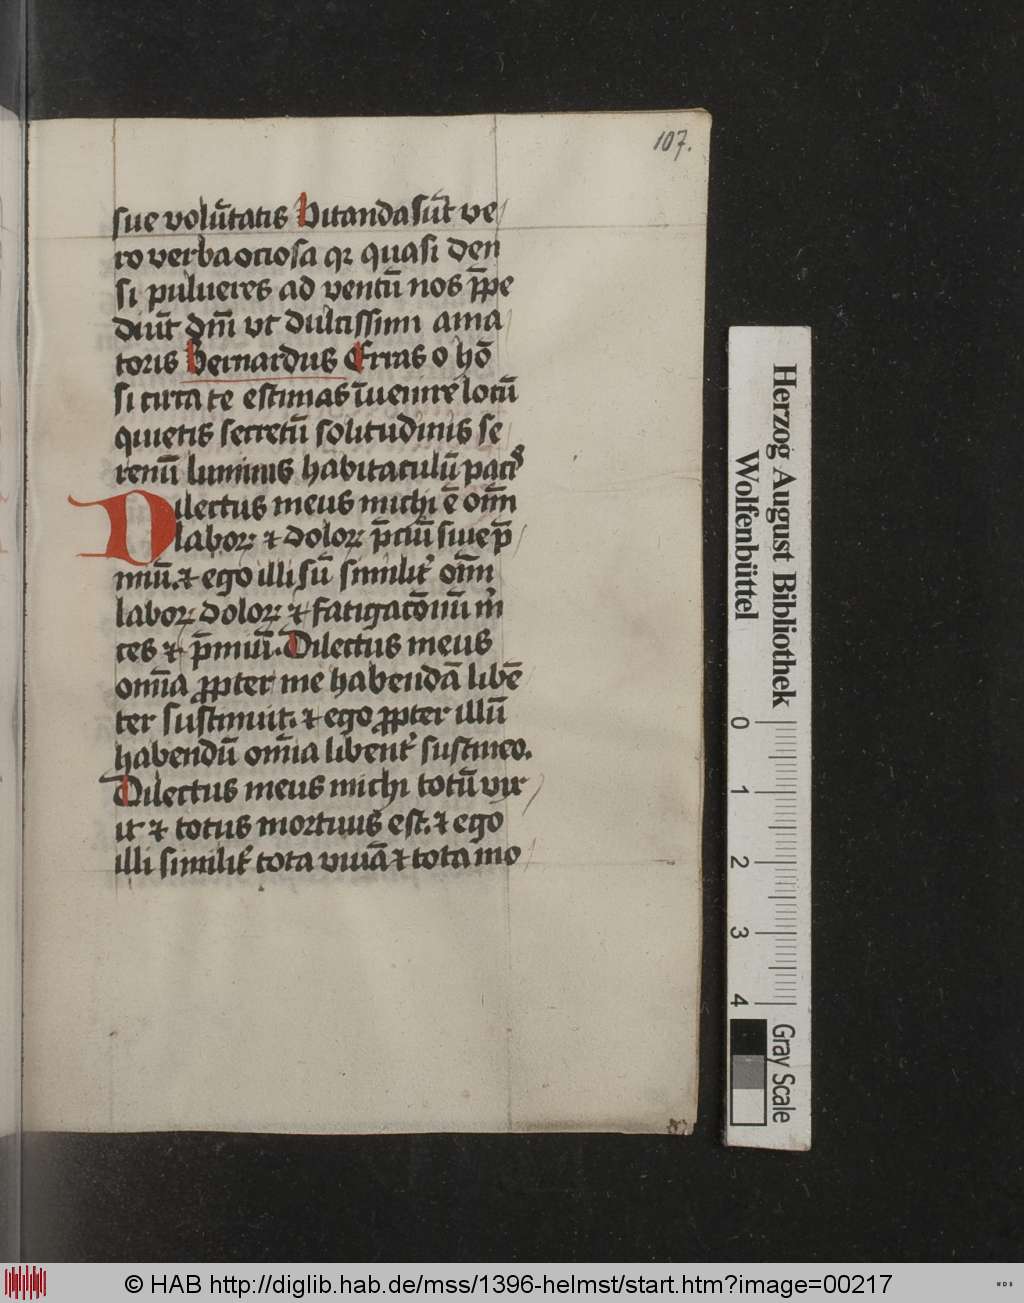 107.
sue volūtatis Vitanda sūt ve/
ro verba ociosa qꝛ quasi den
si pulueres ad ventū nos p̄pe
diūt dm̄ vt dulcissimi ama
toris Bernardus Erras o hō
si circa te estimas īuenire locū
quietis secretū solitudinis se
renū luminis habitaculū pacis
Dilectus meus michi ē om̄
laboꝝ ⁊ doloꝝ p̄ciū siue p̄/
miū. ⁊ ego illi sū similit᷑ om̄
laboꝝ doloꝝ ⁊ fatigacōnū m᷑
ces ⁊ p̄miū. Dilectus meus
om̄ia ꝓpter me habendā libē
ter sustinuit. ⁊ ego ꝓpter illū
habendū om̄ia libent᷑ sustineo.
Dilectus meus michi totū vix/
it ⁊ totus mortuus est. ⁊ ego
illi similit᷑ tota viuā ⁊ tota mo/
Herzog August Bibliothek
Wolfenbüttel
0 1 2 3 4
Gray Scale
© HAB http://diglib.hab.de/mss/1396-helmst/start.htm?image=00217
WDB